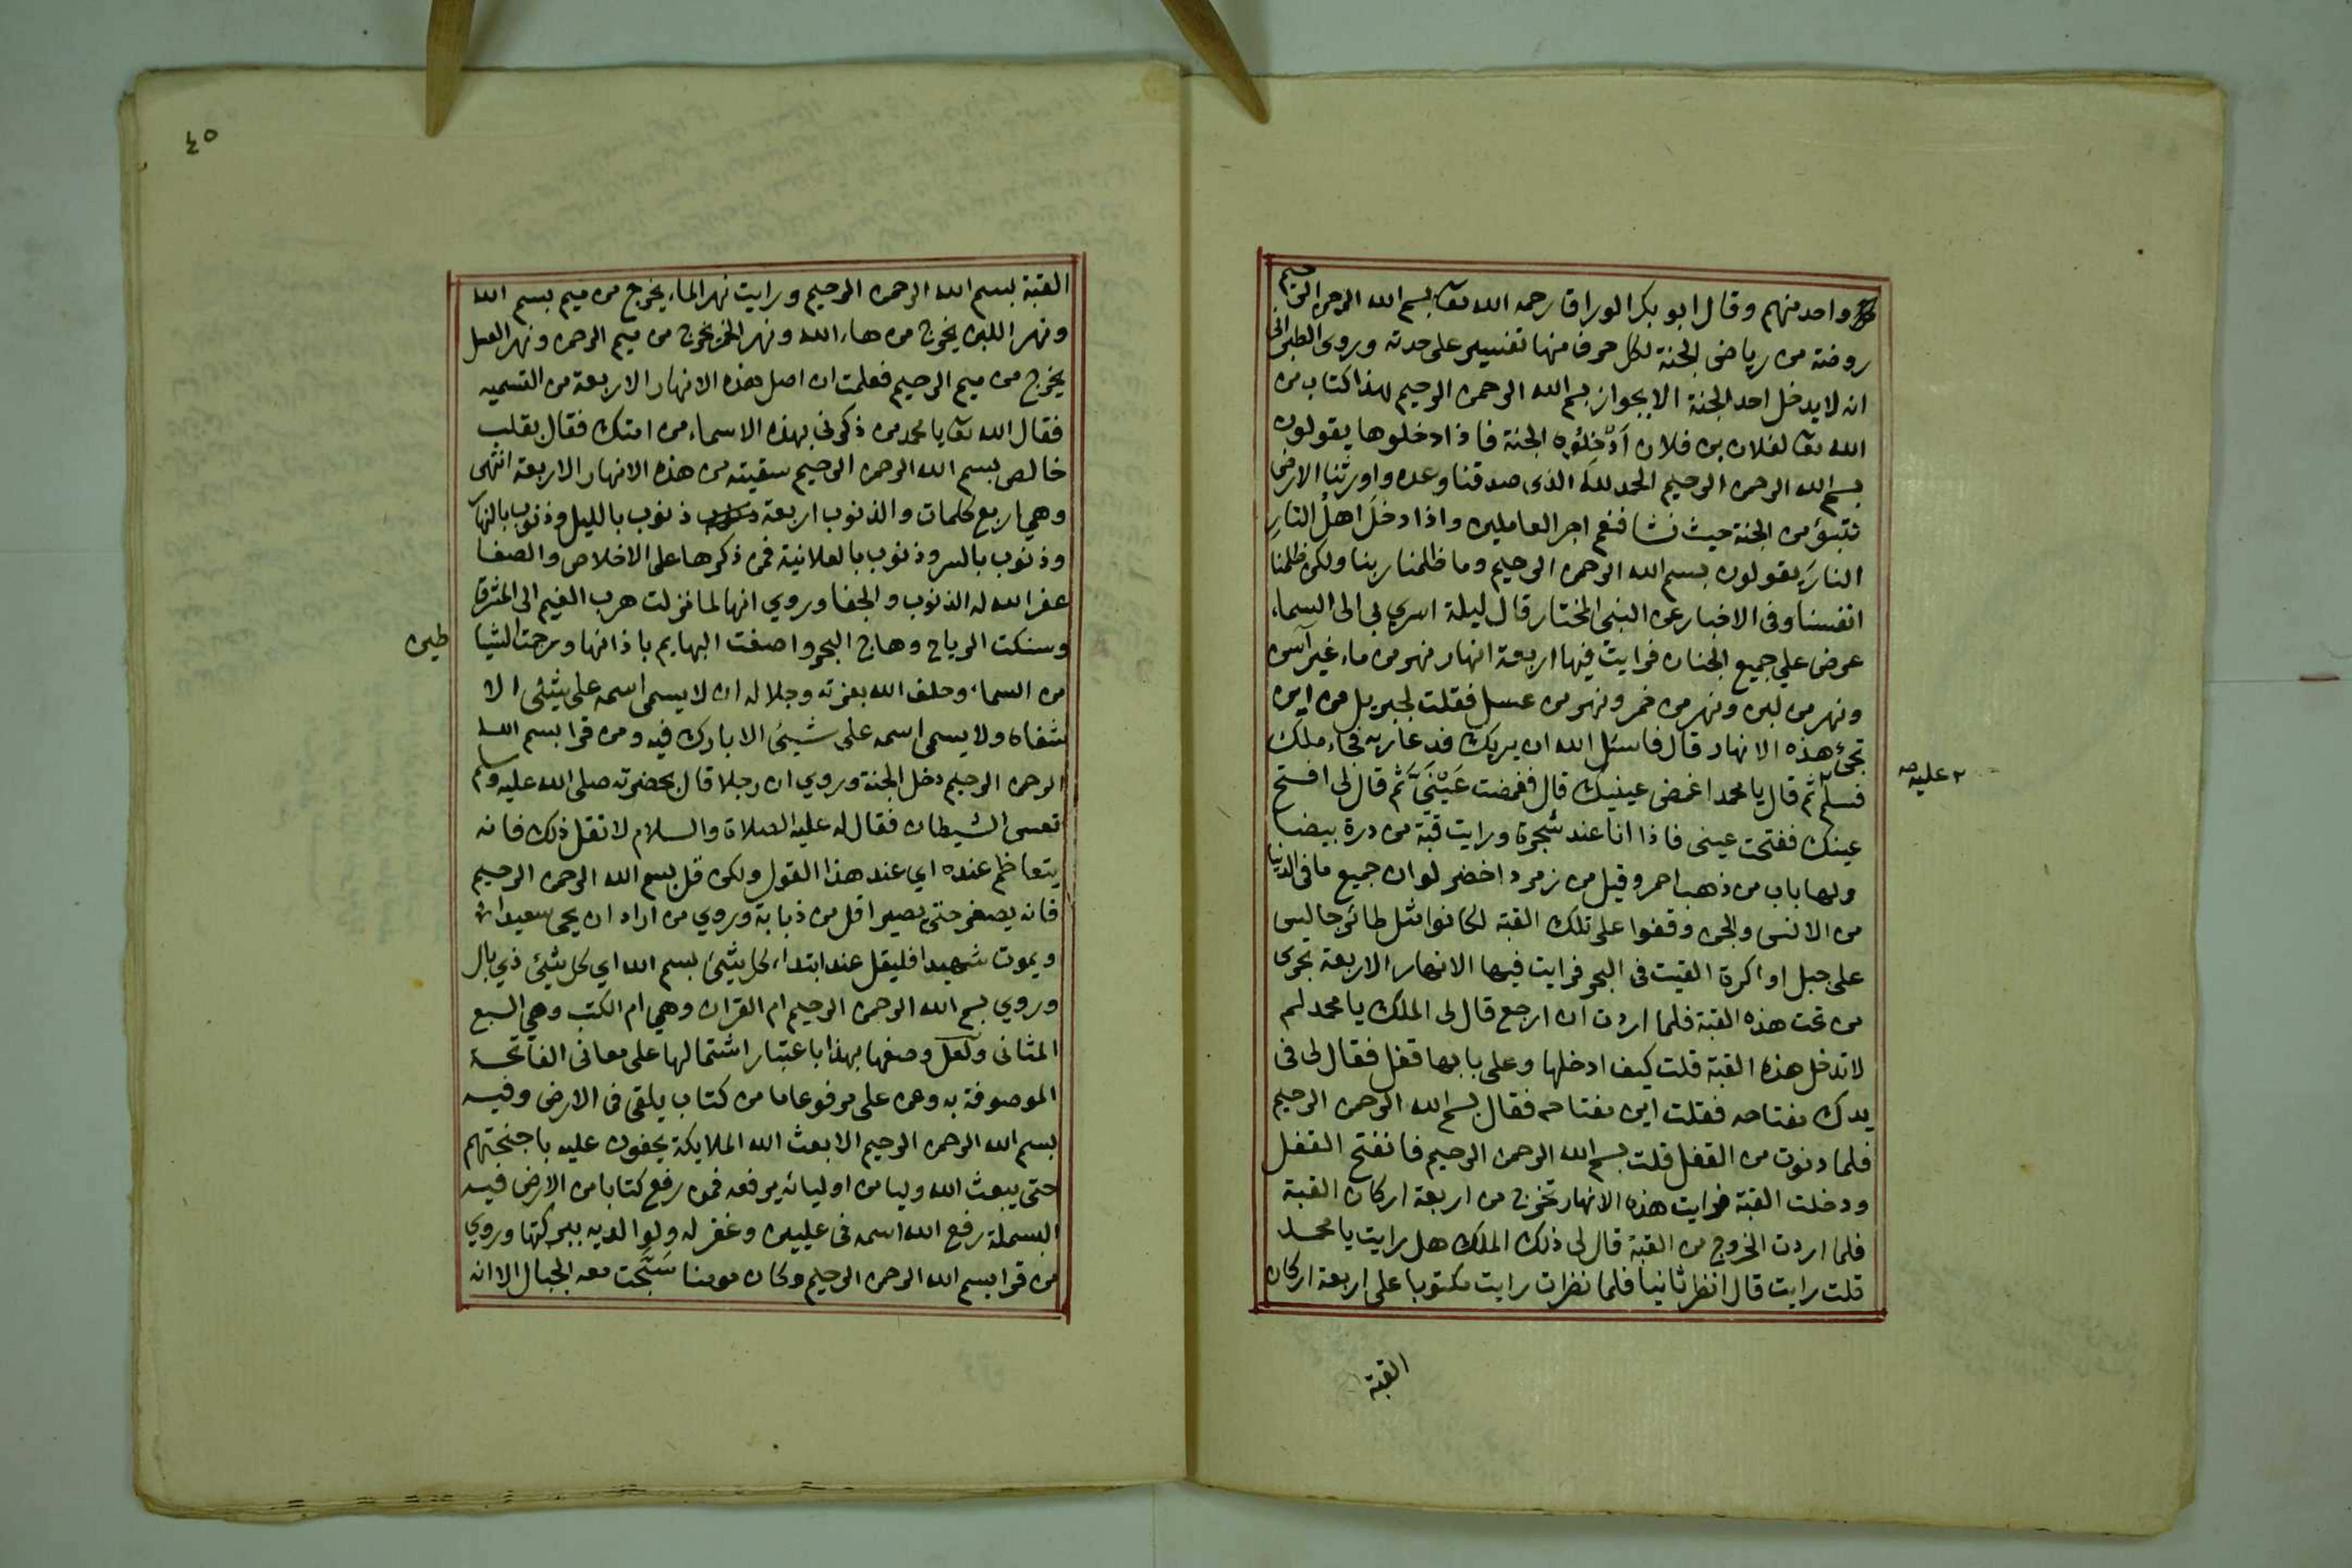 واحد منهم وقال ابو بكر الوراق رحمه الله تعا بسم الله الرحمن الرحيم
روضة من رياض الجنة لكل حرف منها تفسير على حدته وروى الطبراني
انه لا يدخل احد الجنة الا بجواز بسم الله الرحمن الرحيم هذا كتاب من
الله تعا لفلان بن فلان اَدْخِلُوه الجنة فاذا دخلوها يقولون
بسم الله الرحمن الرحيم الحمد لله الذى صدقنا وعده واورثنا الارض
نتبوؤ من الجنة حيث نشا فنعم اجر العاملين واذا دخلَ اهلُ النارِ
النارَ يقولون بسم الله الرحمن الرحيم وما ظلمنا ربنا ولكن ظلمنا
انفسنا وفى الاخبار عن النبى المختار قال ليلة اسري بي الى السماء
عرض علي جميع الجنان فرايت فيها اربعة انهار نهر من ماء غير آسن
ونهر من لبن ونهر من خمر ونهر من عسل فقلت لجبريل من اين
تجئ هذه الانهار قال فاسئل الله ان يريك فدعا ربه فجاء ملك
فسلم ٢ ثم قال يا محمد اغمض عينيك قال فغمضت عَيْنَيَّ ثم قال لى افتح
٢ عليه صح
عينك ففتحت عينى فاذا انا عند شجرة ورايت قبّة من درة بيضا
ولها باب من ذهب احمر وقيل من زمرد اخضر لو ان جميع ما فى الدنيا
من الانس والجن وقفوا على تلك القبة لكانوا مثل طائر جالس
على جبل او اكرة القيت فى البحر فرايت فيها الانهار الاربعة تجرى
من تحت هذه القبة فلما اردت ان ارجع قال لى الملك يا محمد لم
لا تدخل هذه القبة قلت كيف ادخلها وعلى بابها قفل فقال لى فى
يدك مفتاحه فقلت اين مفتاحه فقال بسم الله الرحمن الرحيم
فلما دنوت من القفل قلت بسم الله الرحمن الرحيم فانفتح القفل
ودخلت القبة فرايت هذه الانهار تخرج من اربعة اركان القبة
فلما اردت الخروج من القبة قال لى ذلك الملك هل رايت يا محمد
قلت رايت قال انظر ثانيا فلما نظرات رايت مكتوبا على اربعة اركان
القبة
٤٥
القبة بسم الله الرحمن الرحيم ورايت نهر الماء يخرج من ميم بسم الله
ونهر اللبن يخرج من هاء الله ونهر الخمر يخرج من ميم الرحمن ونهر العسل
يخرج من ميم الرحيم فعلمت ان اصل هذه الانهار الاربعة من التسميه
فقال الله تعا يا محمد من ذكرنى بهذه الاسماء من امتك فقال بقلب
خالص بسم الله الرحمن الرحيم سقيته من هذه الانهار الاربعة انتهى
وهي اربع كلمات والذنوب اربعة ذنوب بالليل وذنوب بالنهار
وذنوب بالسر وذنوب بالعلانية فمن ذكرها على الاخلاص والصفا
غفر الله له الذنوب والجفا وروي انها لما نزلت هرب الغيم الى المشرق
وسنكت الرياح وهاج البحر واصفت البهايم باذانها ورجمت الشيا
طين
من السماء وحلف الله بعزته وجلاله ان لا يسمى اسمه على شئى الا
شفاه ولا يسمى اسمه على شيئ الا بارك فيه ومن قرا بسم الله
الرحمن الرحيم دخل الجنة وروي ان رجلا قال بحضرته صلى الله عليه وسلم
تعس الشيطان فقال له عليه الصلاة والسلام لا تقل ذلك فانه
يتعاظم عنده اي عند هذا القول ولكن قل بسم الله الرحمن الرحيم
فانه يصغر حتى يصير اقل من ذبابة وروي من اراد ان يحى سعيدا
ويموت شهيدا فليقل عند ابتداء كل شئ بسم الله اي كل شئ ذي بال
وروي بسم الله الرحمن الرحيم ام القران وهي ام الكتب وهي السبع
المثانى ولعل وصفها بهذا باعتبار اشتمالها على معانى الفاتحة
الموصوفة به وعن على مرفوعا ما من كتاب يلقى فى الارض وفيه
بسم الله الرحمن الرحيم الا بعث الله الملايكة يحفون عليه باجنحتهم
حتى يبعث الله وليا من اوليائه يرفعه فمن رفع كتابا من الارض فيه
البسملة رفع الله اسمه فى عليين وغفر له ولوالديه ببركتها وروي
من قرا بسم الله الرحمن الرحيم وكان مومنا سَبَّحت معه الجبال الا انه